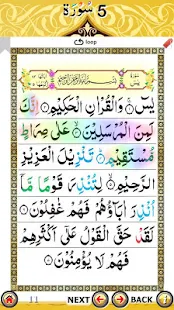 5 سُورَة
loop
يٰسٓ ۚ وَالْقُرْاٰنِ الْحَكِيْمِ ۙ اِنَّكَ
لَمِنَ الْمُرْسَلِيْنَ ۙ عَلٰى صِرَاطٍ
مُّسْتَقِيْمٍ ؕ تَنْزِيْلَ الْعَزِيْزِ
الرَّحِيْمِ ۙ لِتُنْذِرَ قَوْمًا مَّاۤ
اُنْذِرَ اٰبَآؤُهُمْ فَهُمْ غٰفِلُوْنَ
لَقَدْ حَقَّ الْقَوْلُ عَلٰٓى اَكْثَرِهِمْ
فَهُمْ لَا يُؤْمِنُوْنَ
11 NEXT BACK i